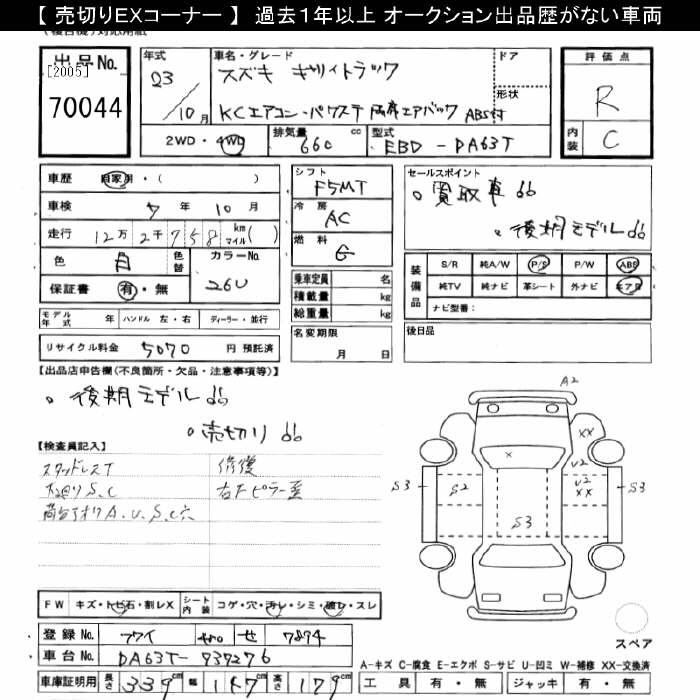 【 売切りEXコーナー 】 過去１年以上 オークション出品歴がない車両
出品No.
[2005]
70044
年式
23
10 月
車名・グレード
スズキ キャリイトラック
KCエアコン・パワステ 両席エアバック ABS付
ドア
形状
2WD・4WD
排気量 660 cc
型式 EBD - DA63T
評価点
R
内装 C
車歴 自家用・( )
車検 7 年 10 月
走行 12万 2千 758 km マイル ( )
色 白 色替
カラーNo. 26U
保証書 有・無
シフト
F5MT
冷房
AC
燃料
G
乗車定員 名
積載量 kg
総重量 kg
名変期限
月 日
セールスポイント
。買取車
。後期モデル
装備品
S/R 純A/W P/S P/W ABS
純TV 純ナビ 革シート 外ナビ エアB
ナビ型番:
後日品
モデル年式 年 ハンドル 左・右 ディーラー・並行
リサイクル料金 5070 円 預託済
【出品店申告欄(不良箇所・欠品・注意事項等)】
。後期モデル
。売切り
【検査員記入】
スタッドレスT
S、C
A、U、S、C穴
修復
右Fピラー
A2
XX
U2
U2
XX
S3
S2
S3
S3
FW キズ・トビ石・割レX
シート内装 コゲ・穴・汚レ・シミ・破レ・スレ
登録No. 7894
車台No. DA63T- 737276
車庫証明用 長さ 339 cm 幅 147 cm 高さ 179 cm
スペア
A-キズ C-腐食 E-エクボ S-サビ U-凹ミ W-補修 XX-交換済
工具 有・無 ジャッキ 有・無